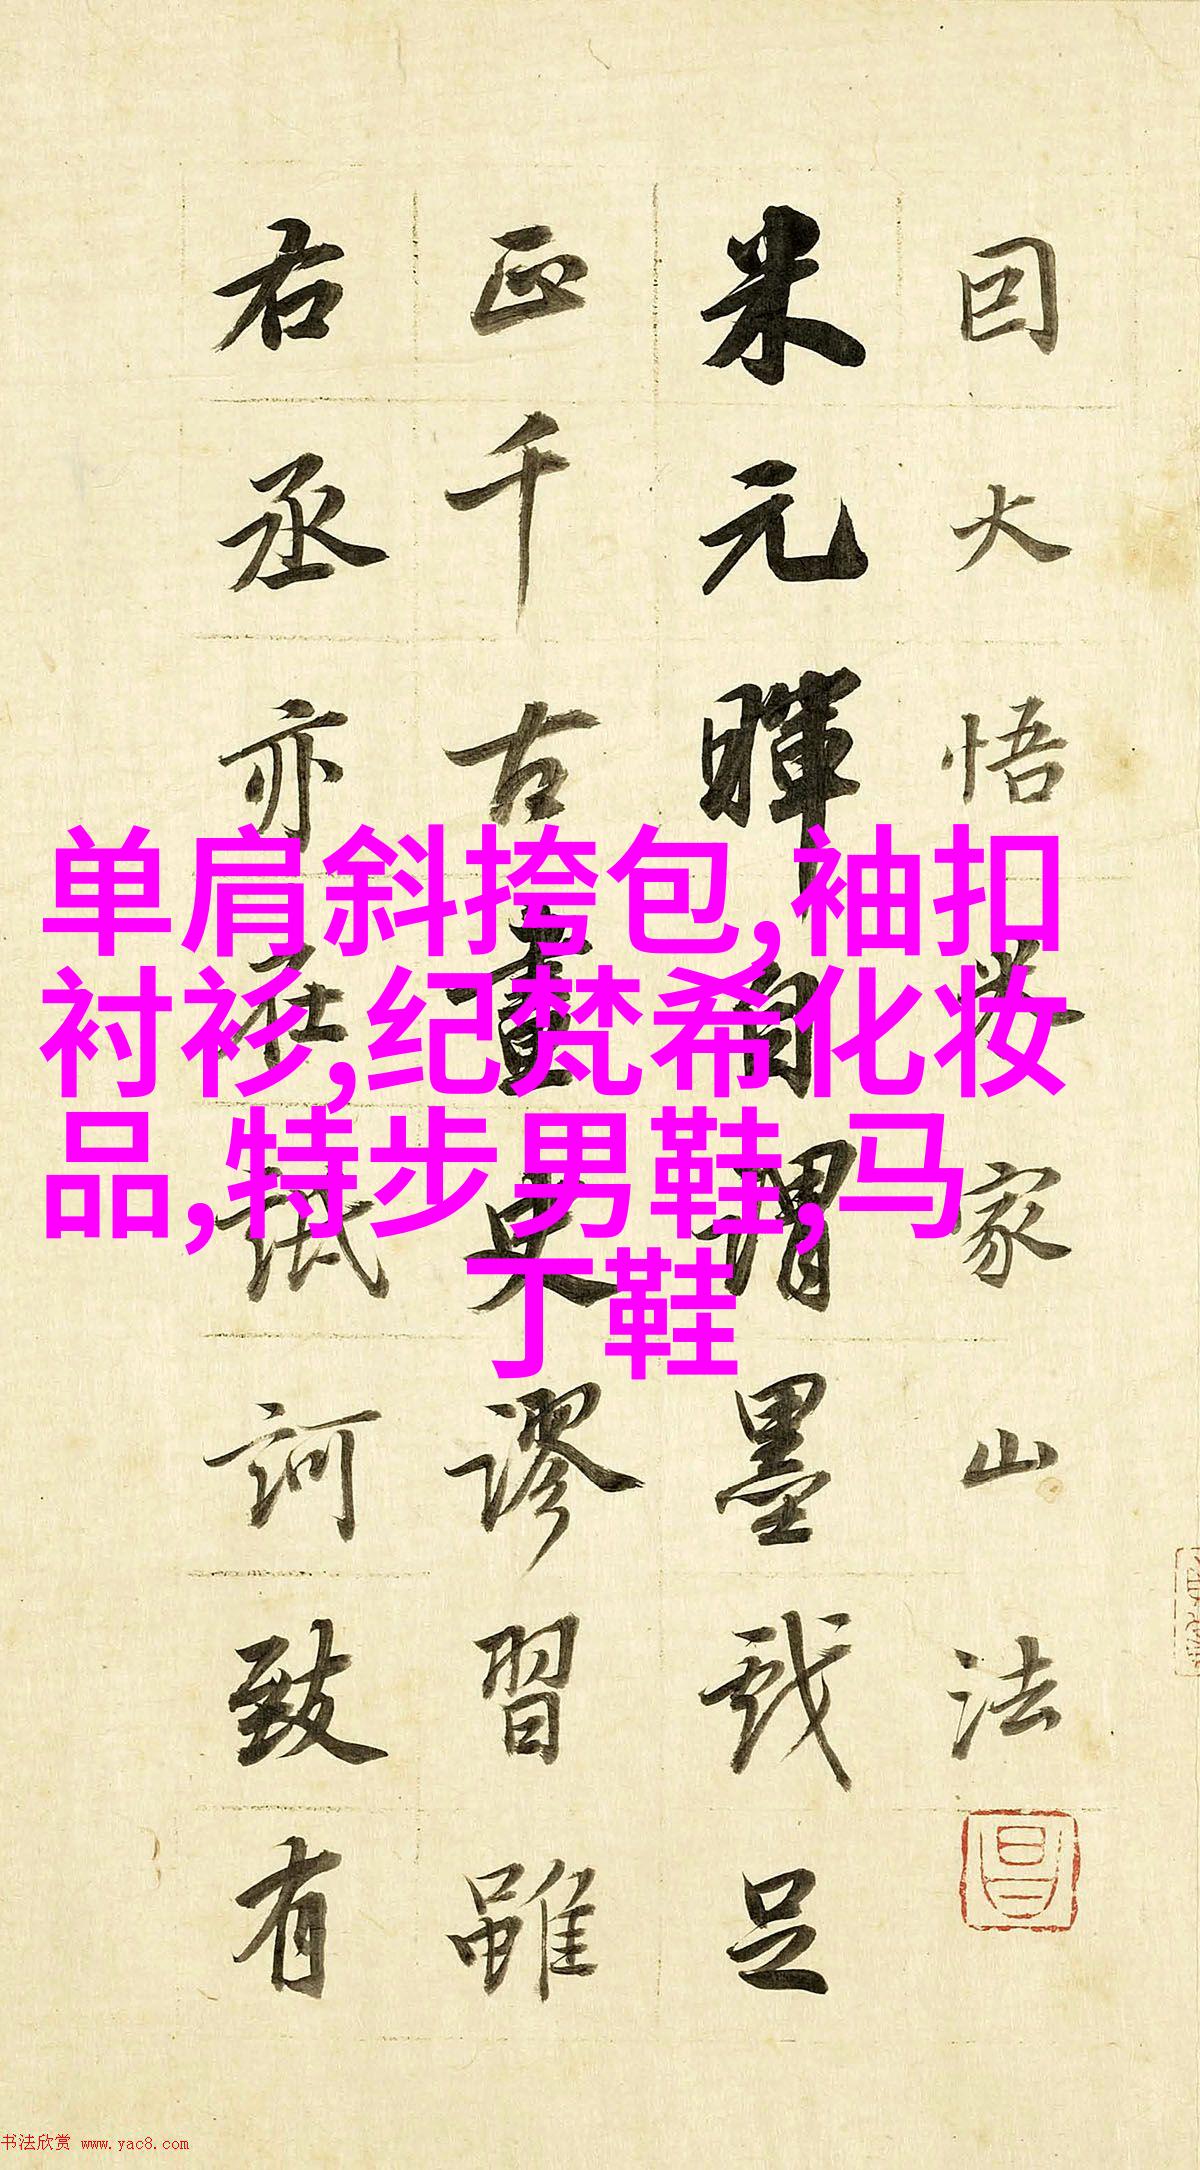 右丞亦在詆訶致有
正千古畫史謬習雖
米元暉自謂墨戲足
因大悟米家山法
单肩斜挎包,袖扣
衬衫,纪梵希化妆
品,特步男鞋,马
丁鞋
书法欣赏 www.yac8.com